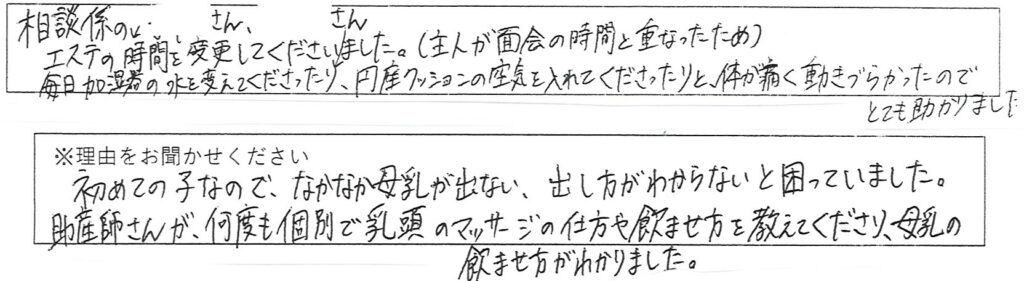 相談係の さん、 さん
エステの時間を変更してくださいました。(主人が面会の時間と重なったため)
毎日加湿器の水を変えてくださったり、円座クッションの空気を入れてくださったりと、体が痛く動きづらかったので
とても助かりました
※理由をお聞かせください
初めての子なので、なかなか母乳が出ない、出し方がわからないと困っていました。
助産師さんが、何度も個別で乳頭のマッサージの仕方や飲ませ方を教えてくださり、母乳の
飲ませ方がわかりました。